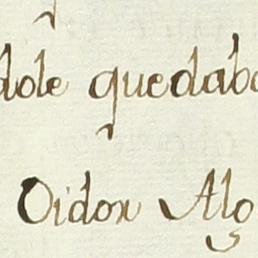 dole quedaba
Oidor Alg